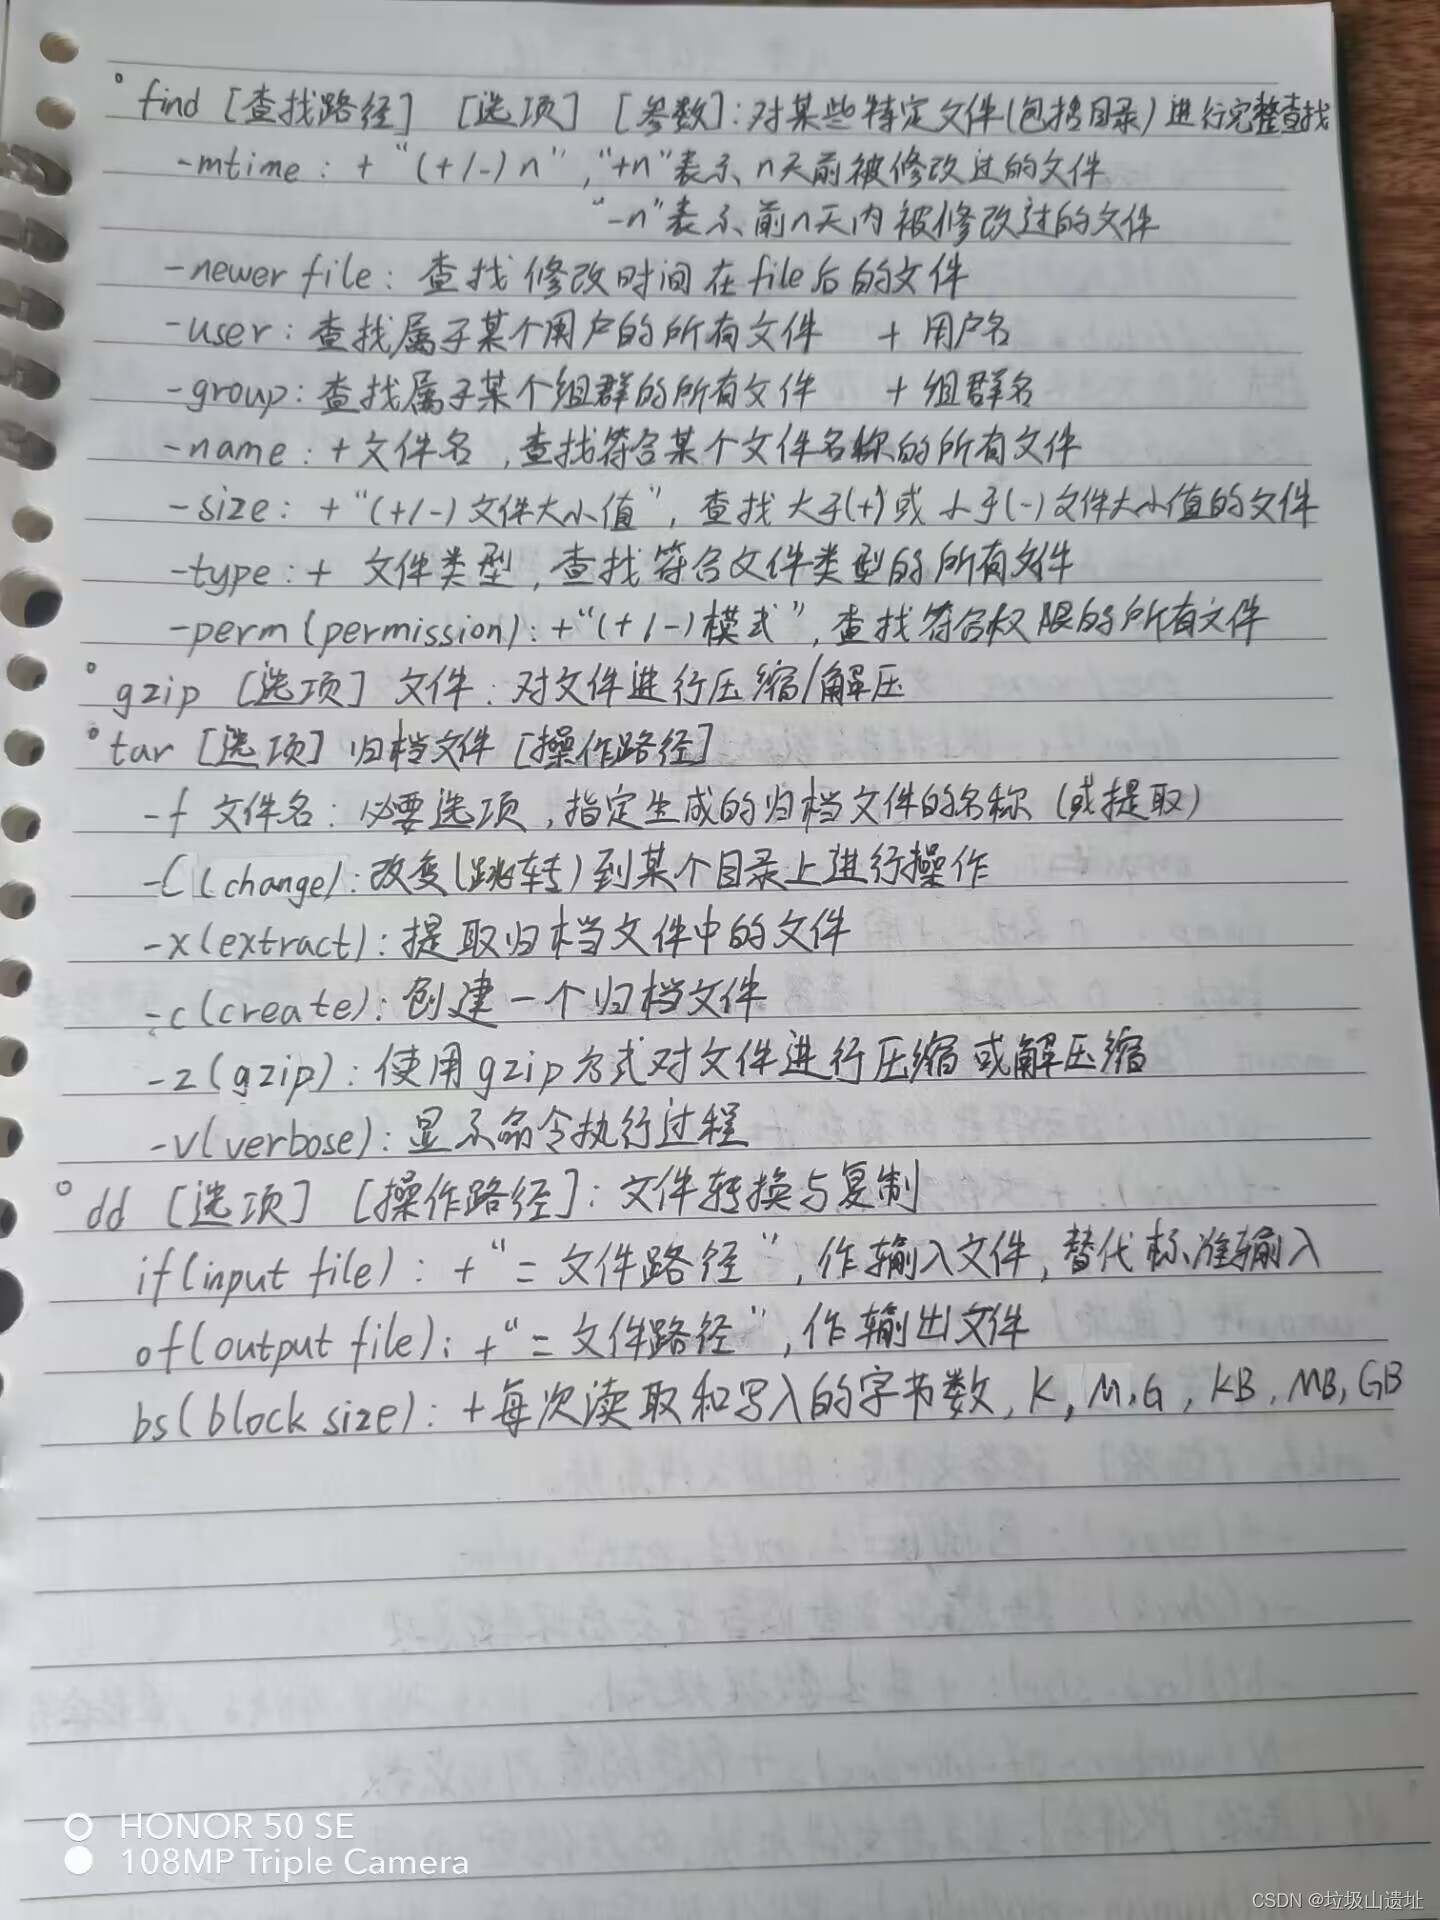 ° find [查找路径] [选项] [参数]: 对某些特定文件(包括目录)进行完整查找
-mtime: + "(+/-) n", "+n"表示n天前被修改过的文件
"-n"表示前n天内被修改过的文件
-newer file: 查找修改时间在file后的文件
-user: 查找属于某个用户的所有文件 + 用户名
-group: 查找属于某个组群的所有文件 + 组群名
-name: + 文件名, 查找符合某个文件名称的所有文件
-size: + "(+/-)文件大小值", 查找大于(+)或小于(-)文件大小值的文件
-type: + 文件类型, 查找符合文件类型的所有文件
-perm(permission): +"(+/-)模式", 查找符合权限的所有文件
° gzip [选项] 文件: 对文件进行压缩/解压
° tar [选项] 归档文件 [操作路径]
-f 文件名: 必要选项, 指定生成的归档文件的名称(或提取)
-C(change): 改变(跳转)到某个目录上进行操作
-x(extract): 提取归档文件中的文件
-c(create): 创建一个归档文件
-z(gzip): 使用gzip方式对文件进行压缩或解压缩
-v(verbose): 显示命令执行过程
° dd [选项] [操作路径]: 文件转换与复制
if(input file): +"=文件路径", 作输入文件, 替代标准输入
of(output file): +"=文件路径", 作输出文件
bs(block size): +每次读取和写入的字节数, K, M, G, KB, MB, GB
HONOR 50 SE
108MP Triple Camera
CSDN @垃圾山遗址